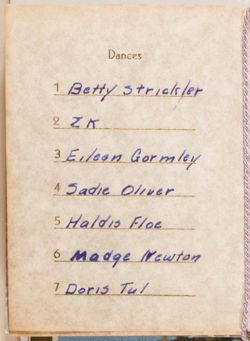 Dances
1 Betty Strickler
2 ZK
3 Eileen Gormley
4 Sadie Oliver
5 Haldis Floe
6 Madge Newton
7 Doris Tul